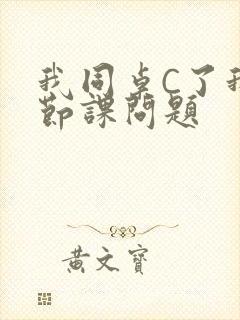 我同卓C了我
節課問題
黃文寶